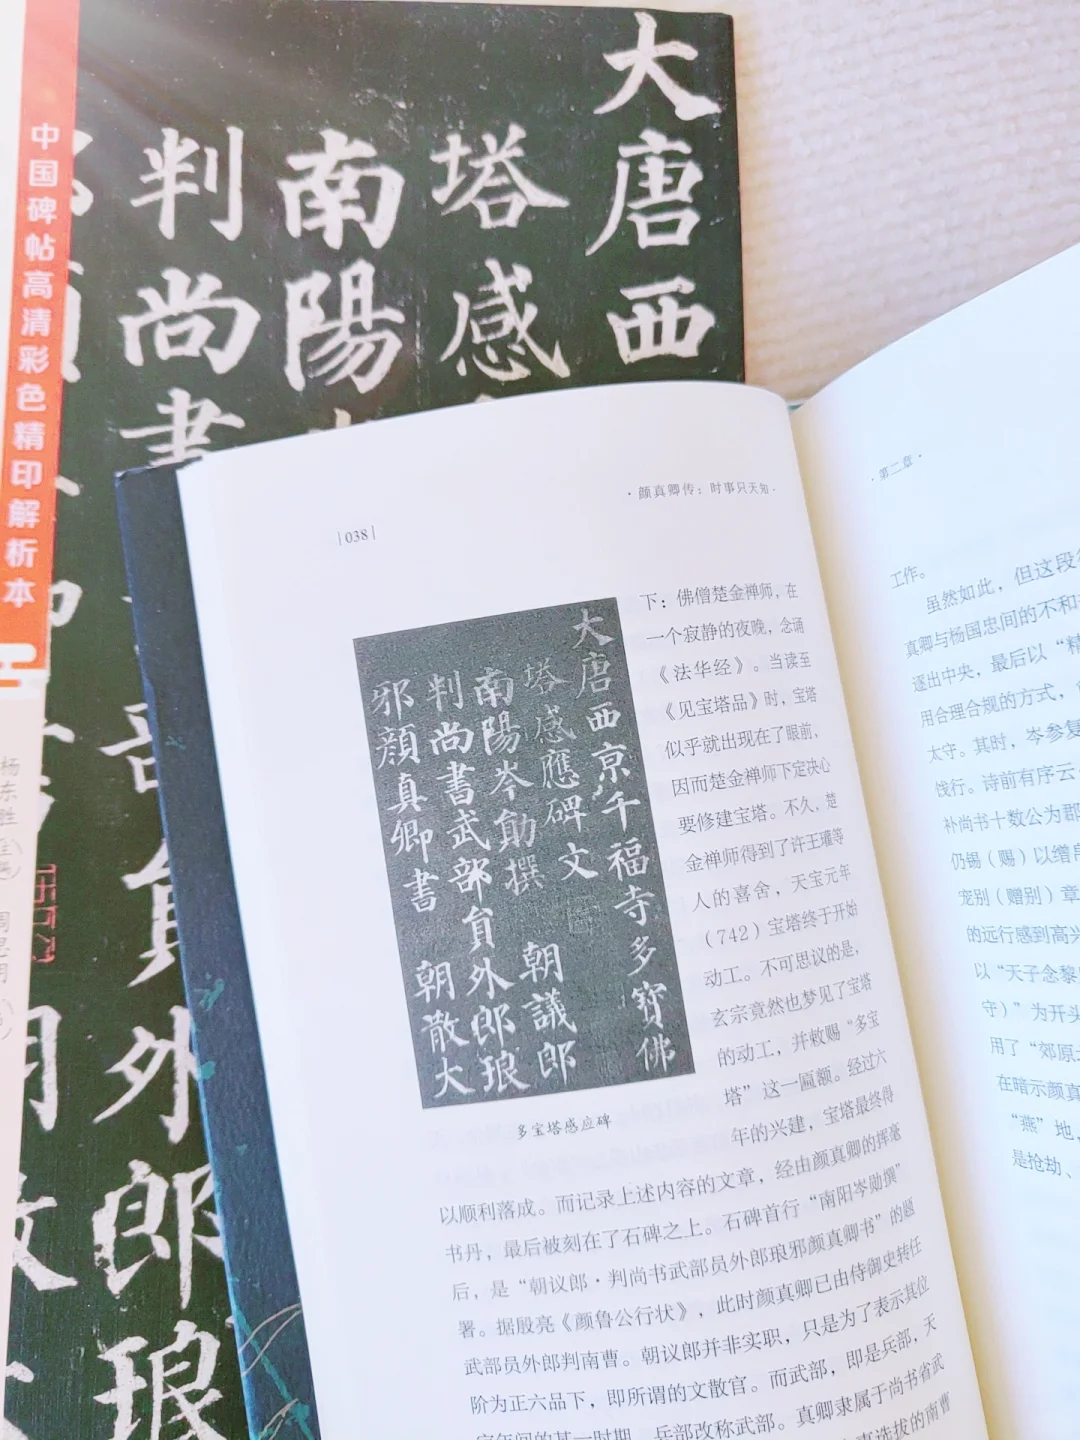 中国碑帖高清彩色精印解析本
大唐西
塔感
南陽
判尚書
員外郎琅
杨东胜
·颜真卿传：时事只天知·
|038|
大唐西京千福寺多寶佛
塔感應碑文
南陽岑勛撰 朝議郎
判尚書武部員外郎琅
邪顔真卿書 朝散大
多宝塔感应碑
下：佛僧楚金禅师，在
一个寂静的夜晚，念诵
《法华经》。当读至
《见宝塔品》时，宝塔
似乎就出现在了眼前，
因而楚金禅师下定决心
要修建宝塔。不久，楚
金禅师得到了许王瓘等
人的喜舍，天宝元年
（742）宝塔终于开始
动工。不可思议的是，
玄宗竟然也梦见了宝塔
的动工，并敕赐“多宝
塔”这一匾额。经过六
年的兴建，宝塔最终得
以顺利落成。而记录上述内容的文章，经由颜真卿的挥毫
书丹，最后被刻在了石碑之上。石碑首行“南阳岑勋撰”
后，是“朝议郎·判尚书武部员外郎琅邪颜真卿书”的题
署。据殷亮《颜鲁公行状》，此时颜真卿已由侍御史转任
武部员外郎判南曹。朝议郎并非实职，只是为了表示其位
阶为正六品下，即所谓的文散官。而武部，即是兵部，天
宝年间的某一时期，兵部改称武部。真卿隶属于尚书省武
事选拔的南曹
·第二章·
工作。
虽然如此，但这段
真卿与杨国忠间的不和
逐出中央，最后以“精
用合理合规的方式，
太守。其时，岑参复
饯行。诗前有序云
补尚书十数公为郡
仍锡（赐）以缯帛
宠别（赠别）章
的远行感到高兴
以“天子念黎
守）”为开头
用了“郊原
在暗示颜真
“燕”地，
是抢劫、